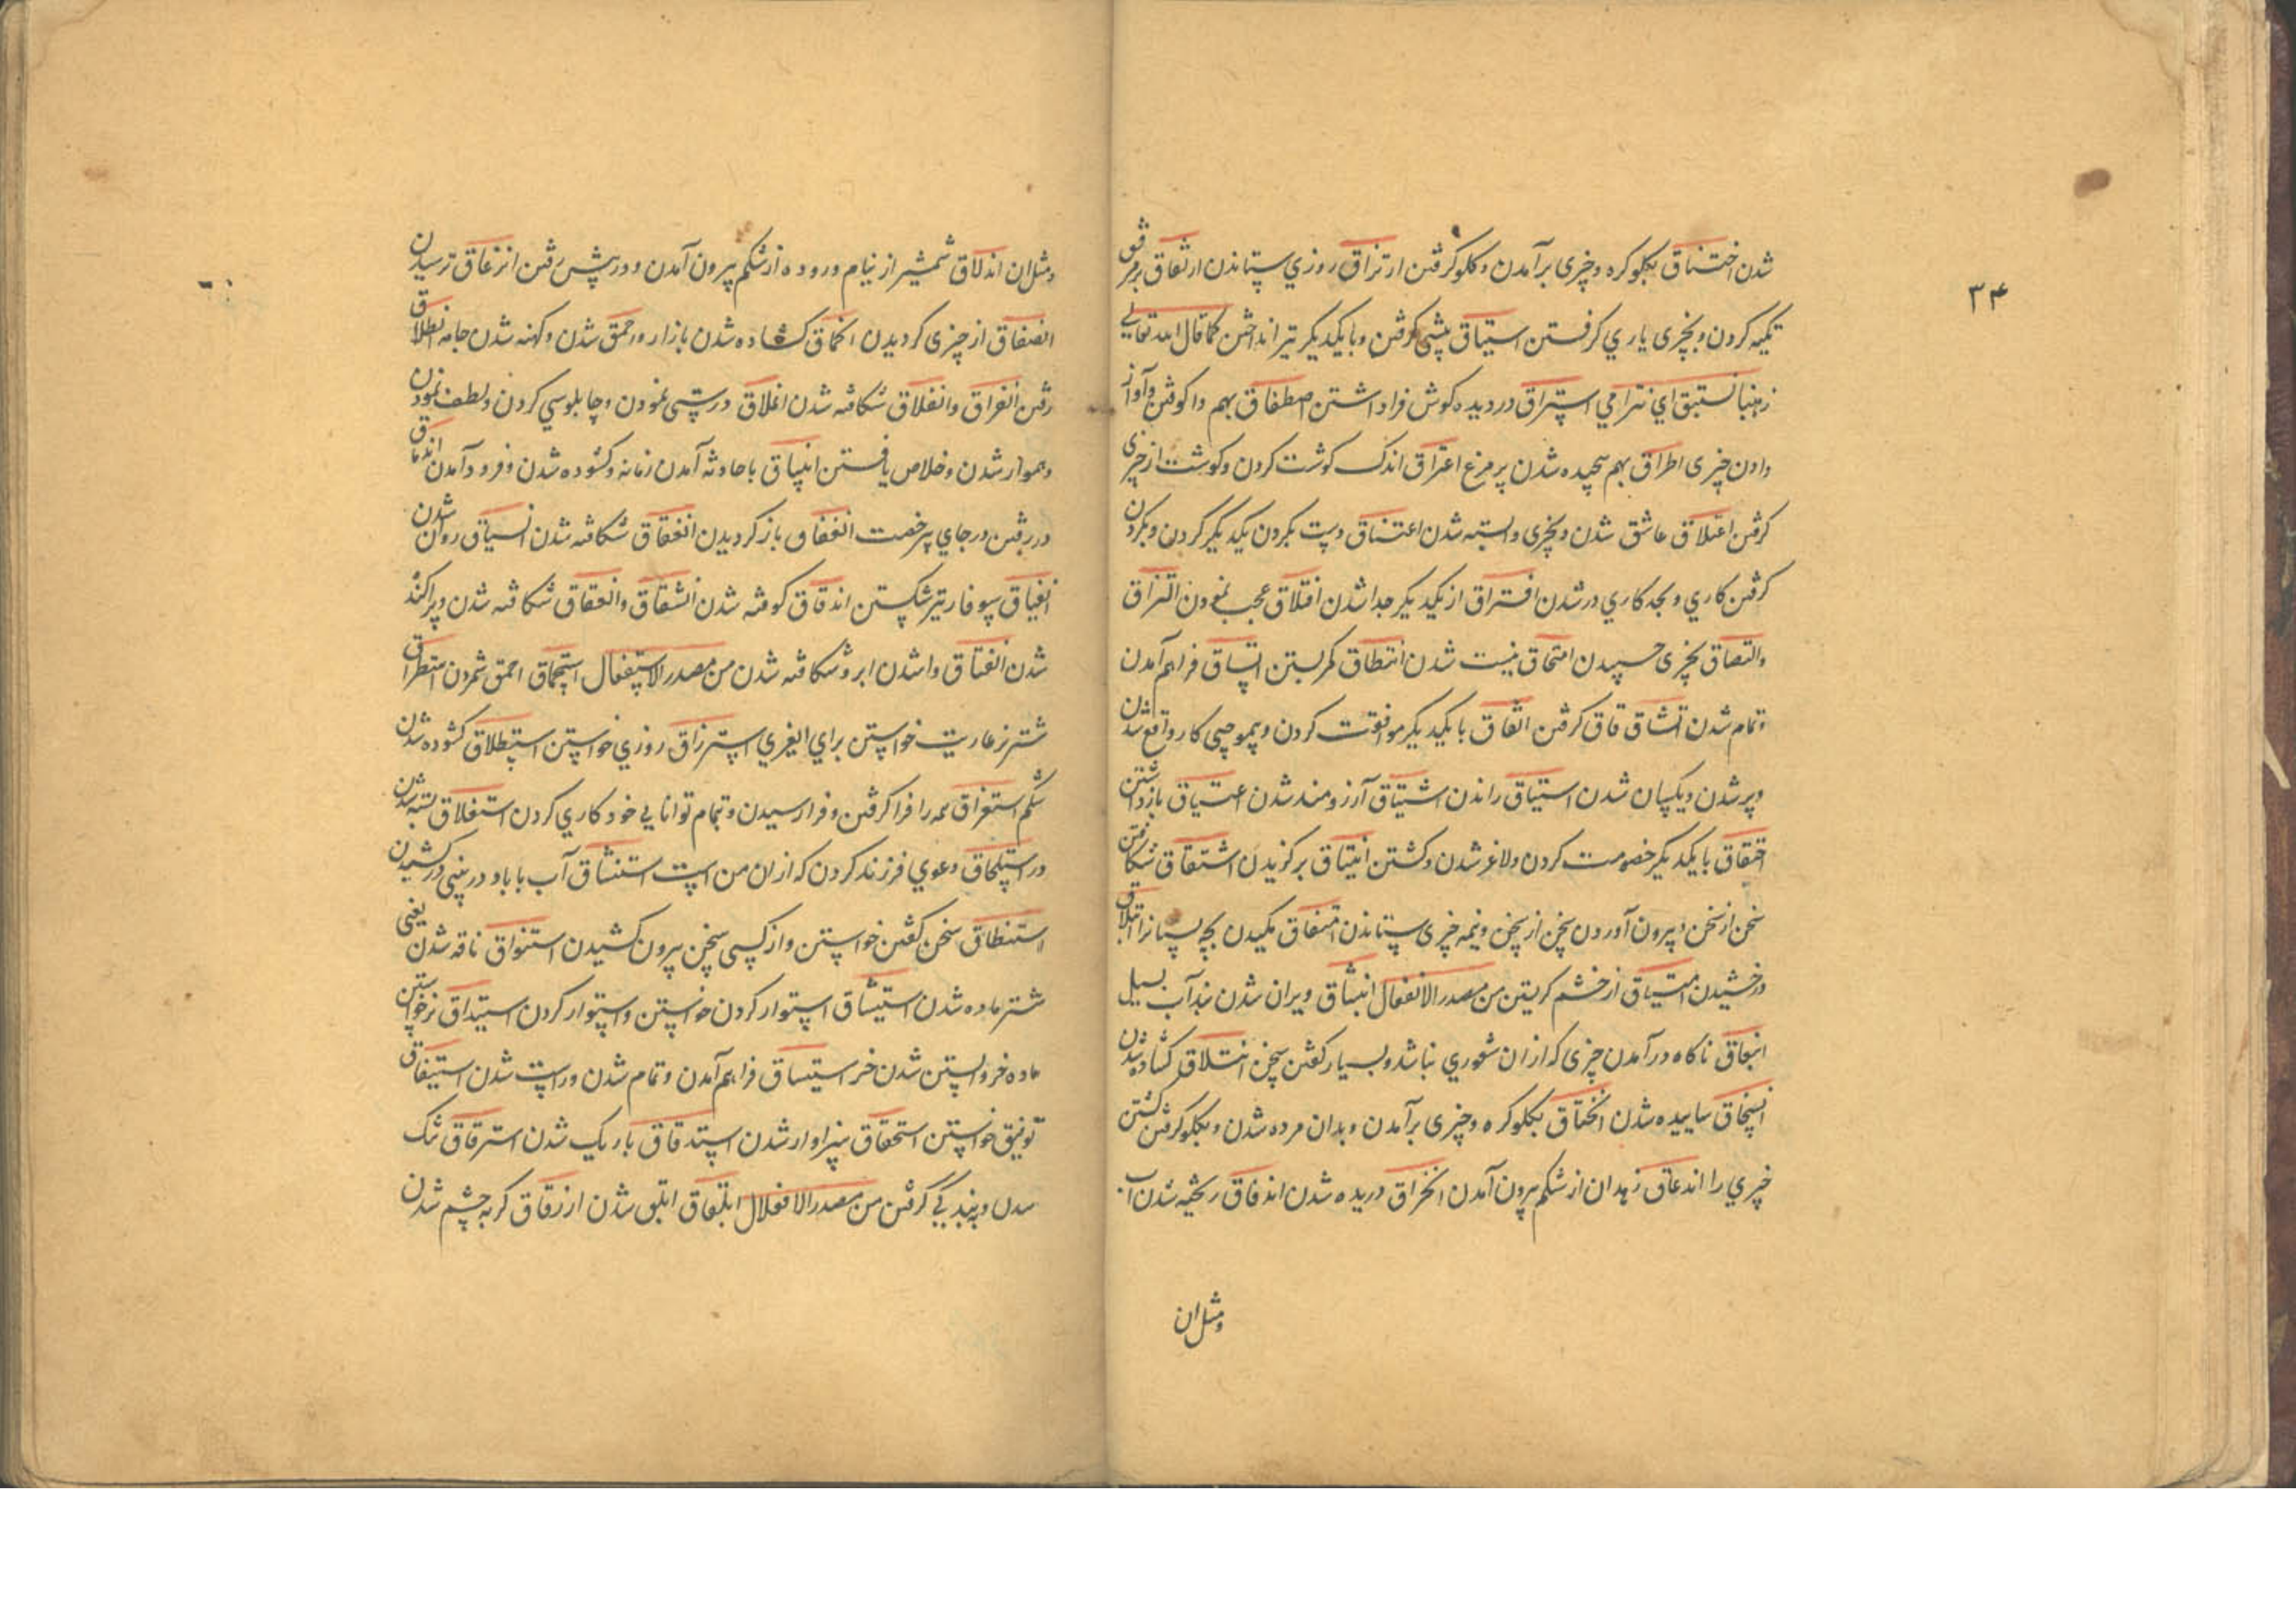 ۳۴
شدن اختناق بکلو کره و چیزی برآمدن و کلو کرفتن ارتزاق روزي ستاندن ارتفاق بر مرفق
تکیه کردن و بچیزی یاري کرفتن استباق پیشی کرفتن و با یکدیکر تیر انداختن کما قال الله تعالی
ذهبنا نستبق اي نترامي استراق دزدیده کوش فرا داشتن اصطفاق بهم واکوفتن و آواز
دادن چیزی اطراق بهم پیچیده شدن پر مرغ اعتراق اندک کوشت کردن و کوشت از چیزی
کرفتن اعتلاق عاشق شدن و بچیزی وابسته شدن اعتناق دست بکردن یکدیکر کردن و بکردن
کرفتن کاري و بجد کاري در شدن افتراق از یکدیکر جدا شدن افتلاق عجب نمودن التزاق
والتصاق بچیزی چسپیدن امتحاق نیست شدن انتطاق کمر بستن اتساق فراهم آمدن
و تمام شدن اتشاق قاق کرفتن اتفاق با یکدیکر موافقت کردن و بهم کار واقع شدن
و پر شدن و یکسان شدن استیاق راندن اشتیاق آرزومند شدن اعتیاق بازداشتن
احتقاق با یکدیکر خصومت کردن و لاغر شدن و کشتن انتیاق برکزیدن اشتقاق شکافتن
سخن از سخن و بیرون آوردن سخن از سخن و نیمه چیزی ستاندن امتقاق مکیدن بچه پستانرا ائتلاق
درخشیدن امتیاق از خشم کریستن من مصدر الانفعال انبثاق ویران شدن بند آب بسیل
انبعاق ناکاه درآمدن چیزی که از ان شعوري نباشد و بسیار کفتن سخن انتلاق کشاده شدن
انسحاق ساییده شدن انخناق بکلو کره و چیزی برآمدن و بدان مرده شدن و بکلو کرفتن کشتن
چیزي را اندعاق زهدان از شکم بیرون آمدن انخراق دریده شدن اندفاق ریخته شدن آب
و مثل ان
و مثل ان اندلاق شمشیر از نیام و روده از شکم بیرون آمدن و در پیش رفتن انزعاق ترسیدن
انصفاق از چیزی کردیدن انحماق کشاده شدن بازار و احمق شدن و کهنه شدن جامه انطلاق
رفتن انفراق وانفلاق شکافته شدن املاق درویشی نمودن و چاپلوسي کردن و لطف نمودن
و هموار شدن و خلاص یافتن انبیاق با حادثه آمدن زمانه و کشوده شدن و فرود آمدن اندماق
در رفتن در جاي بي رخصت انفقاق باز کردیدن انفقاق شکافته شدن انسیاق روان شدن
انفیاق سوفار تیر شکستن اندقاق کوفته شدن انشقاق وانعقاق شکافته شدن و پراکنده
شدن انفتاق وا شدن ابر و شکافته شدن من مصدر الاستفعال استحماق احمق شمردن استطراق
شتر نر عاریت خواستن براي الغري استرزاق روزي خواستن استطلاق کشوده شدن
شکم استغراق همه را فرا کرفتن و فرا رسیدن و تمام توانایي خود کاري کردن استغلاق بسته شدن
در استلحاق دعوي فرزند کردن که از ان من است استنشاق آب یا باد در بینی درکشیدن
استنطاق سخن کفتن خواستن و از کسی سخن بیرون کشیدن استنواق ناقه شدن یعنی
شتر ماده شدن استیثاق استوار کردن خواستن و استوار کردن استیداق نر خواستن
ماده خر و آبستن شدن خر استیساق فراهم آمدن و تمام شدن و راست شدن استیفاق
توفیق خواستن استحقاق سزاوار شدن استدقاق باریک شدن استرقاق تنک
شدن و ببندکی کرفتن من مصدر الافعلال ابلقاق ابلق شدن ازرقاق کربه چشم شدن